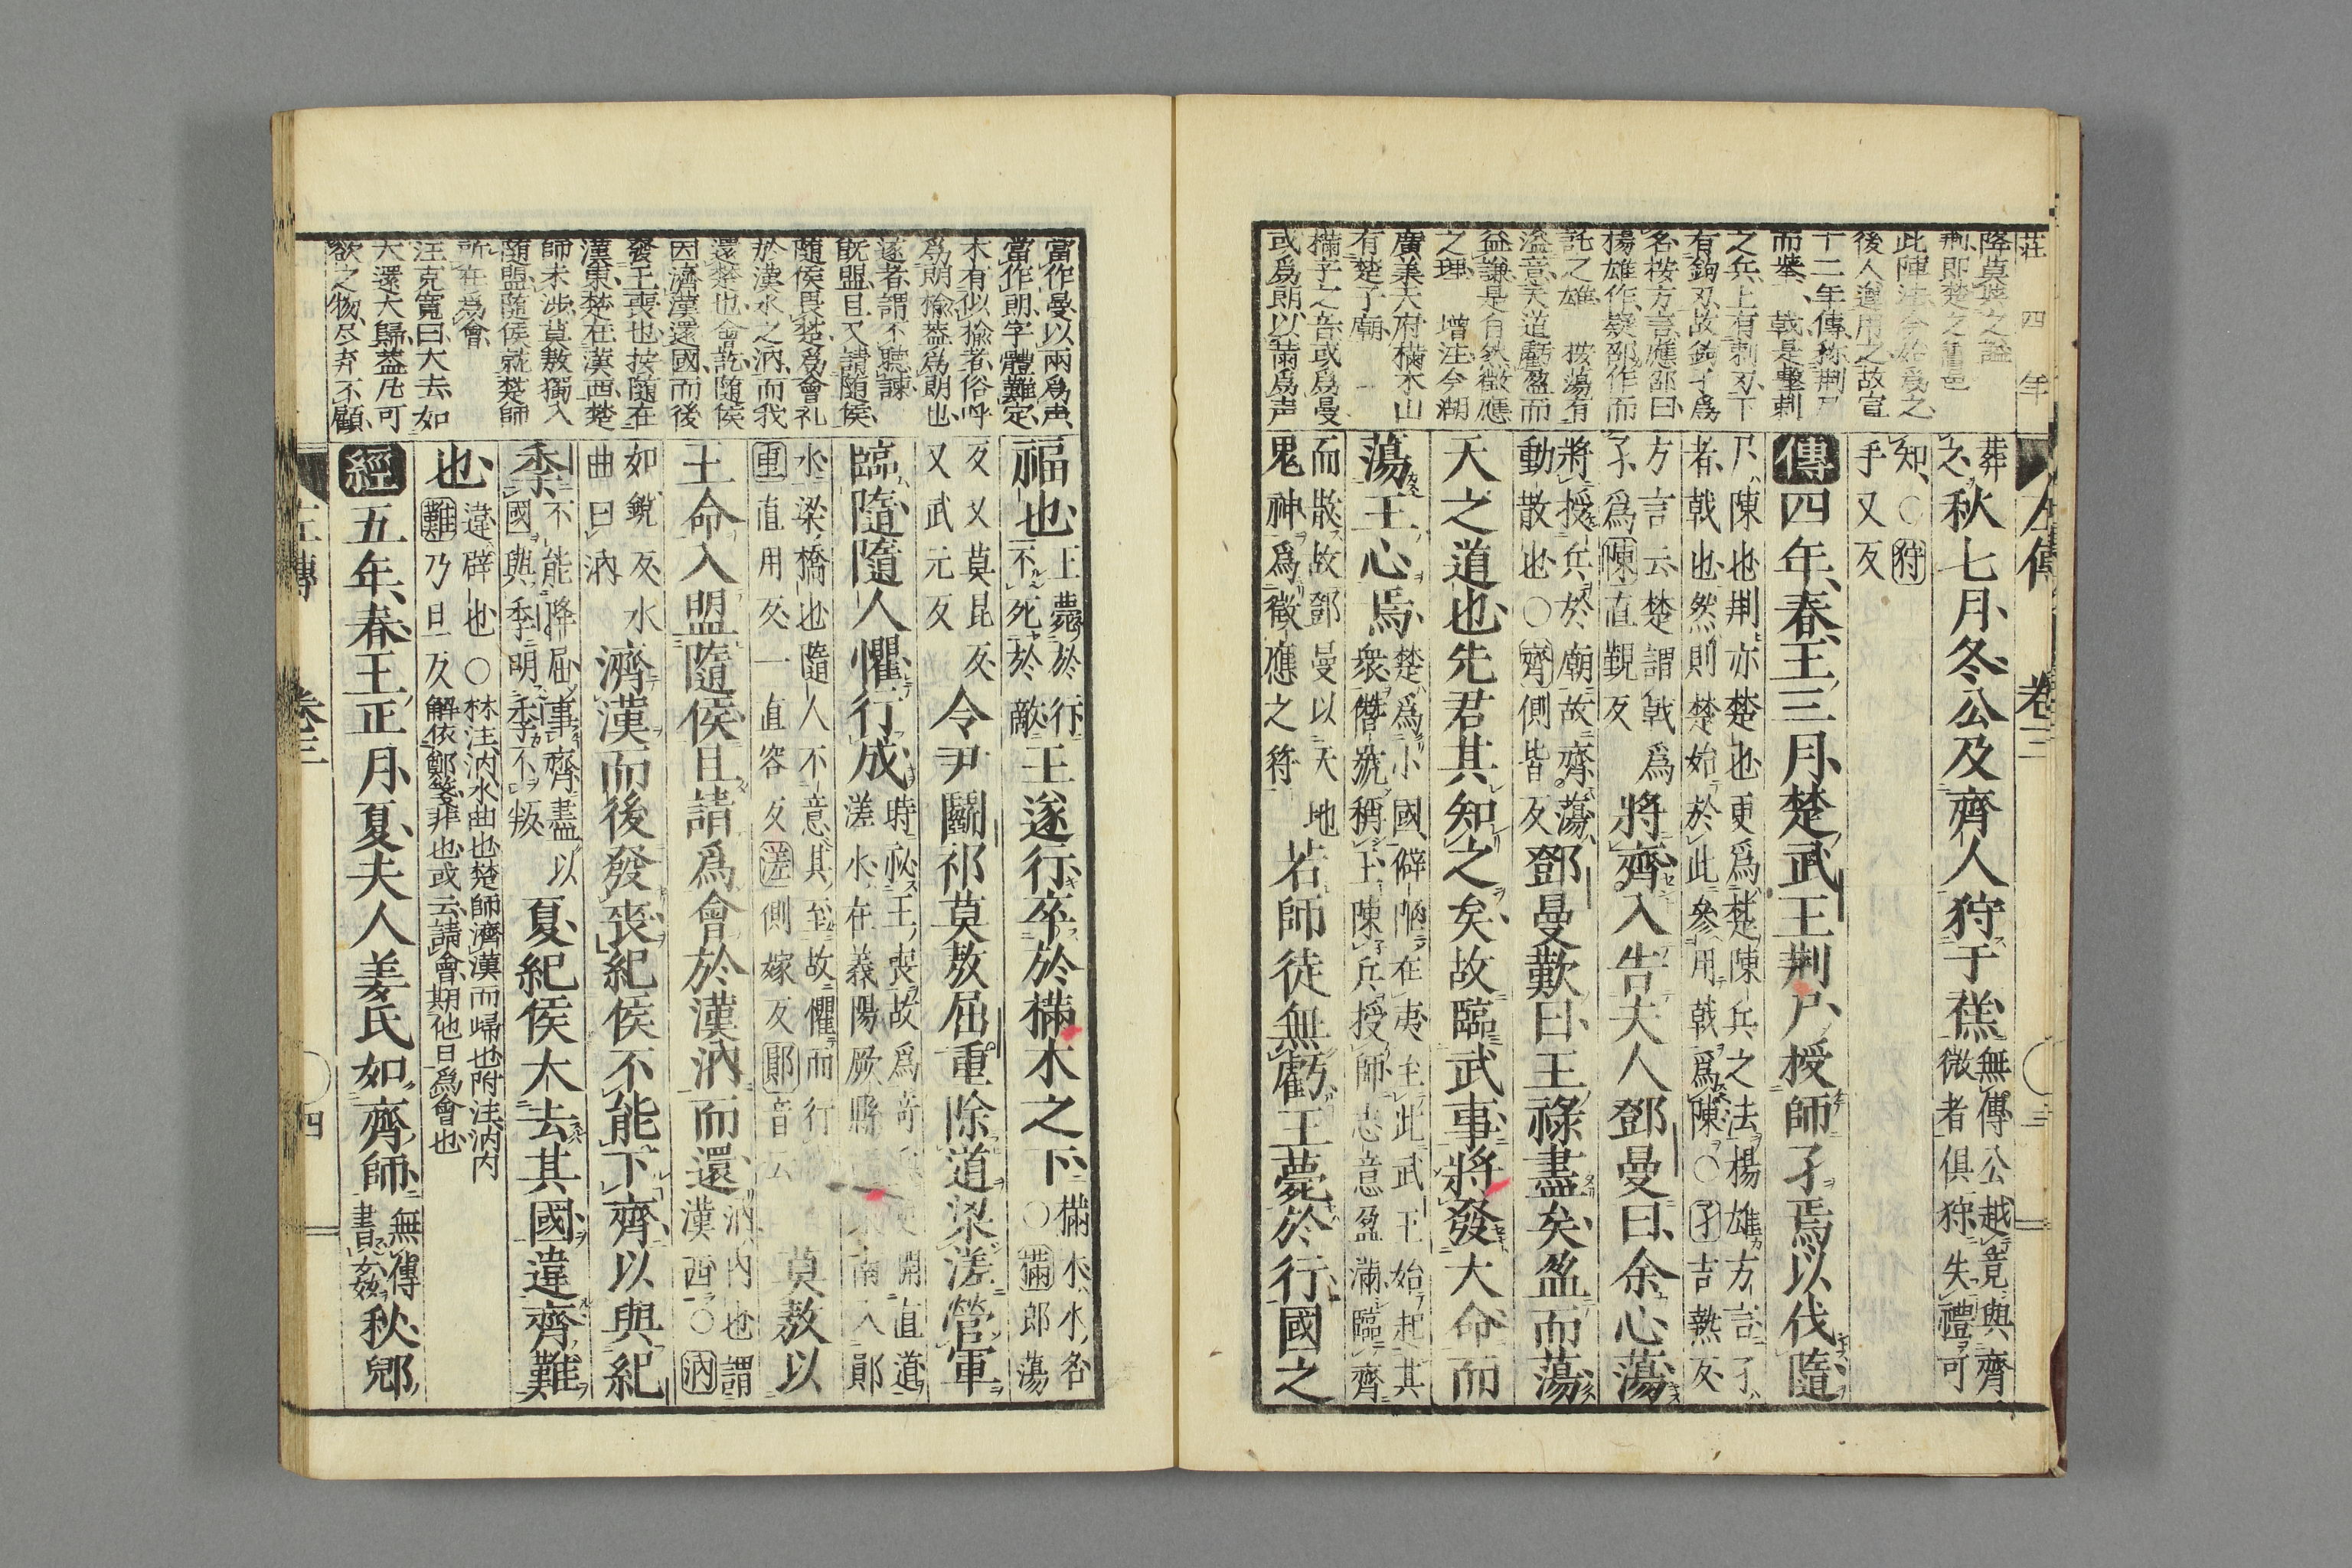 莊 四年
降莫與之謚
荆即楚之舊邑
此陣法今始爲之
後人遵用之故宣
十二年傳称荆尸
而擧 戟是擊刺
之兵上有刺刃下
有鉤刃故鉤孑爲
名按方言應邵曰
楊雄作疑邵作而
託之雄 按蕩有
溢意天道虧盈而
益謙是自然徴應
之理 增注今湖
廣羙天府樠木山
有楚子廟
樠字之音或爲曼
或爲朗以㒼爲声
葬之秋七月冬公及齊人狩于禚無傳公越竟與齊微者俱狩失禮可
知○狩手又反
傳四年春王三月楚武王荆尸授師孑焉以伐隨
尸陳也荆亦楚也更爲楚陳兵之法楊雄方言孑
者戟也然則楚始於此參用戟爲陳○孑吉熱反
方言云楚謂戟爲孑爲陳直覲反將齊入告夫人鄧曼曰余心蕩
將授兵於廟故齊蕩動散也○齊側皆反鄧曼歎曰王祿盡矣盈而蕩
天之道也先君其知之矣故臨武事將發大命而
蕩王心焉楚爲小國僻陋在夷至此武王始起其衆僭號稱王陳兵授師志意盈滿臨齊
而散故鄧曼以天地鬼神爲徵應之符若師徒無虧王薨於行國之
當作曼以兩爲声
當作朗字體難定
木有似楡者俗呼
爲朗楡蓋爲朗也
遂者謂不聽諫
既盟且又請隨侯
隨侯畏楚爲會礼
於漢水之汭而我
還楚也會訖隨侯
因濟漢還國而後
發王喪也按隨在
漢東楚在漢西楚
師未渉莫敖獨入
隨盟隨侯就楚師
所在爲會
汪克寬曰大去如
大還大歸蓋凡可
欲之物尽弃不顧
福也王薨於行不死於敵王遂行卒於樠木之下樠木木名○樠郎蕩
反又莫昆反又武元反令尹鬬祁莫敖屈重除道梁溠營軍
臨隨隨人懼行成時祕王喪故爲奇兵更開直道溠水在義陽厥縣西東南入鄖
水梁橋也隨人不意其至故懼而行○重直用反一直容反溠側嫁反鄖音云莫敖以
王命入盟隨侯且請爲會於漢汭而還汭內也謂漢西○汭
如銳反水曲曰汭濟漢而後發喪紀侯不能下齊以與紀
季不能降屈事齊盡以國與季明季不叛夏紀侯大去其國違齊難
也違辟也○難乃旦反林注汭水曲也楚師濟漢而歸也附法汭內解依鄭箋非也或云請會期他日爲會也
經五年春王正月夏夫人姜氏如齊師無傳書姦秋郳
左傳 卷三 四